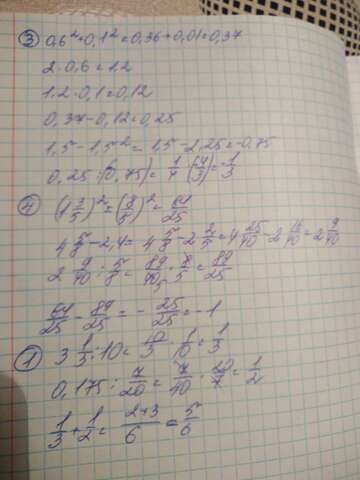 ③ 0,6² + 0,1² = 0,36 + 0,01 = 0,37
2 · 0,6 = 1,2
1,2 · 0,1 = 0,12
0,37 - 0,12 = 0,25
1,5 - 1,5² = 1,5 - 2,25 = -0,75
0,25 : (-0,75) = 1/4 · (-4/3) = -1/3
④ (1 3/5)² = (8/5)² = 64/25
4 5/8 - 2,4 = 4 5/8 - 2 2/5 = 4 25/40 - 2 16/40 = 2 9/40
2 9/40 : 5/8 = 89/40 · 8/5 = 89/25
64/25 - 89/25 = - 25/25 = -1
① 3 1/3 : 10 = 10/3 · 1/10 = 1/3
0,175 : 7/20 = 7/40 · 20/7 = 1/2
1/3 + 1/2 = 2+3/6 = 5/6